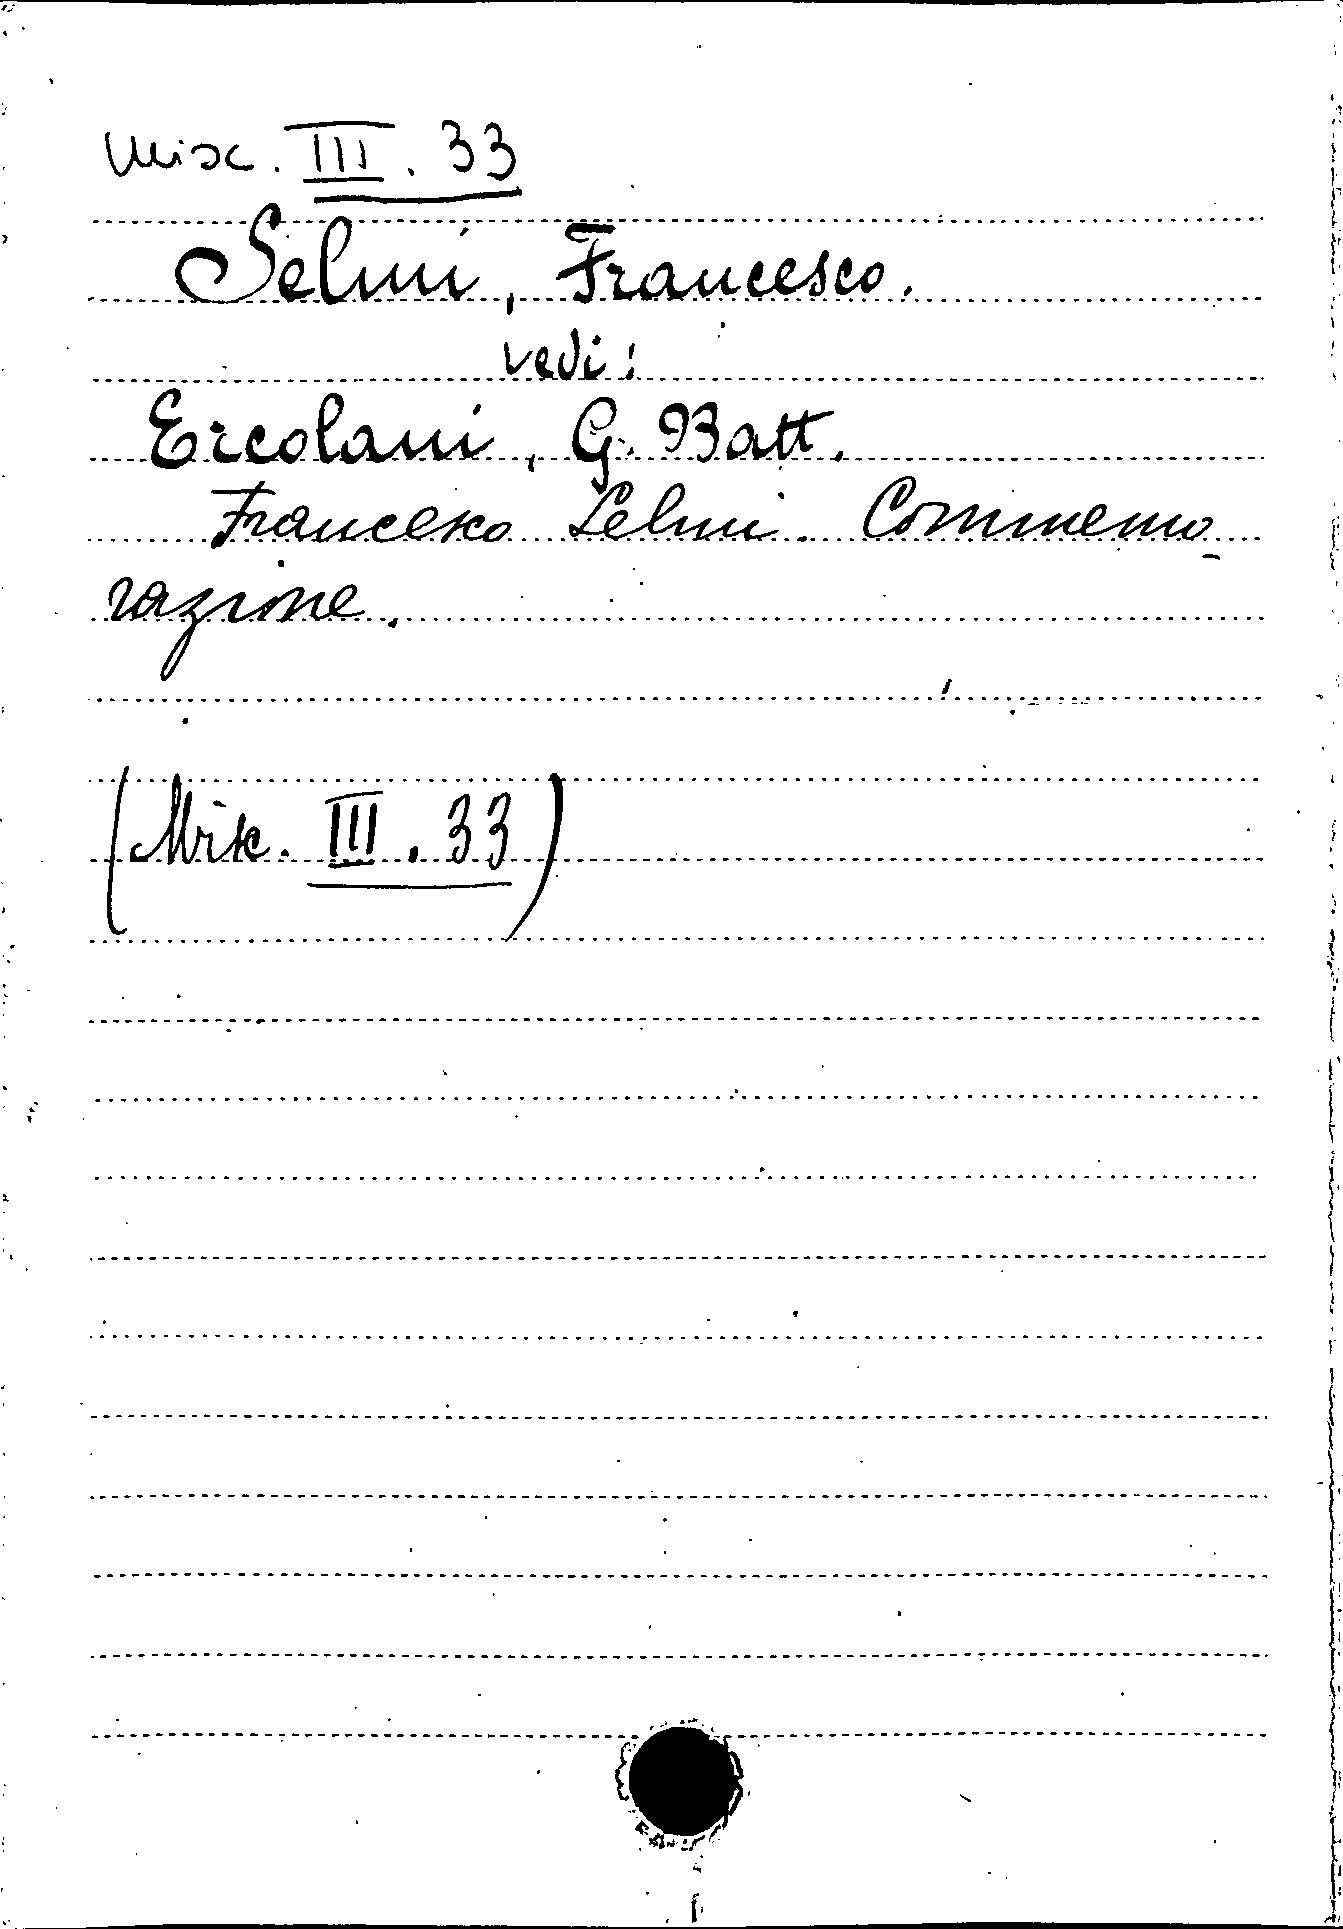 Misc. III. 33
Selmi, Francesco.
vedi:
Ercolani, G. Batt.
Francesco Selmi. Commemo-
razione.
(Misc. III. 33)